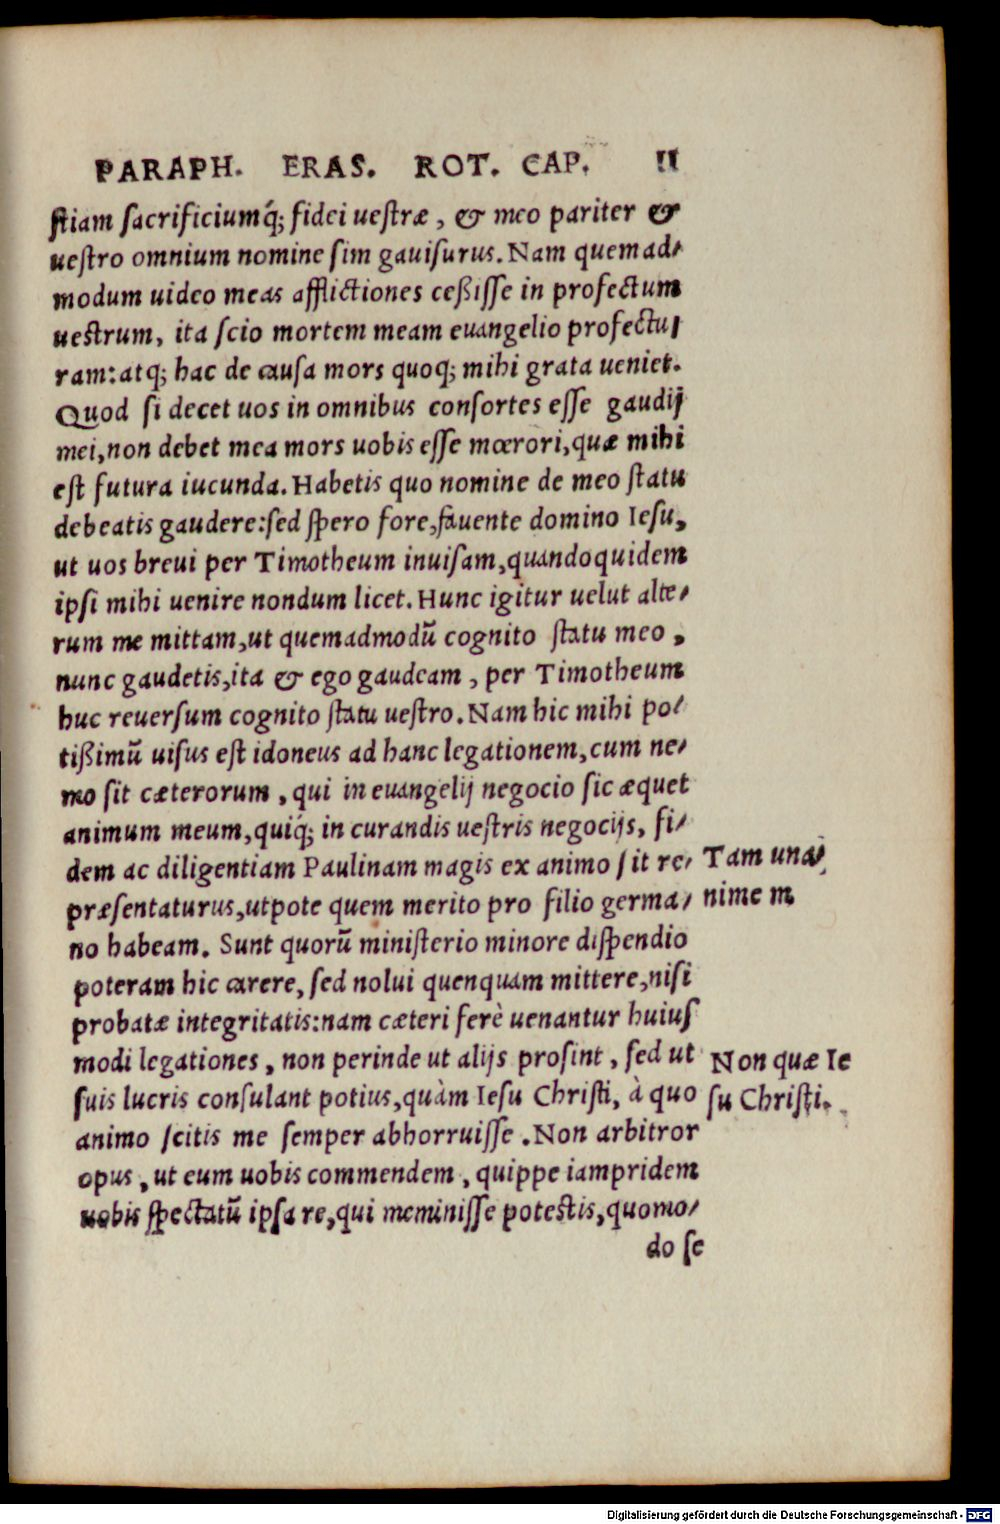 PARAPH. ERAS. ROT. CAP. II
ſtiam ſacrificiumq́; fidei ueſtræ, & meo pariter &
ueſtro omnium nomine ſim gauiſurus. Nam quemad-
modum uideo meas afflictiones ceßiſſe in profectum
ueſtrum, ita ſcio mortem meam euangelio profectu-
ram: atq; hac de cauſa mors quoq; mihi grata ueniet.
Quod ſi decet uos in omnibus conſortes eſſe gaudij
mei, non debet mea mors uobis eſſe mœrori, quæ mihi
eſt futura iucunda. Habetis quo nomine de meo ſtatu
debeatis gaudere: ſed ſpero fore, fauente domino Ieſu,
ut uos breui per Timotheum inuiſam, quandoquidem
ipſi mihi uenire nondum licet. Hunc igitur uelut alte-
rum me mittam, ut quemadmodũ cognito ſtatu meo,
nunc gaudetis, ita & ego gaudeam, per Timotheum
huc reuerſum cognito ſtatu ueſtro. Nam hic mihi po-
tißimũ uiſus eſt idoneus ad hanc legationem, cum ne-
mo ſit cæterorum, qui in euangelij negocio ſic æquet
animum meum, quiq́; in curandis ueſtris negocijs, fi-
dem ac diligentiam Paulinam magis ex animo ſit re-
præſentaturus, utpote quem merito pro filio germa-
no habeam. Sunt quorũ miniſterio minore diſpendio
poteram hic carere, ſed nolui quenquam mittere, niſi
probatæ integritatis: nam cæteri ferè uenantur huiuſ
modi legationes, non perinde ut alijs proſint, ſed ut
ſuis lucris conſulant potius, quàm Ieſu Chriſti, à quo
animo ſcitis me ſemper abhorruiſſe. Non arbitror
opus, ut eum uobis commendem, quippe iampridem
uobis ſpectatũ ipſa re, qui meminiſſe poteſtis, quomo-
do ſe
Tam una-
nime m
Non quæ Ie
ſu Chriſti.
Digitalisierung gefördert durch die Deutsche Forschungsgemeinschaft - DFG